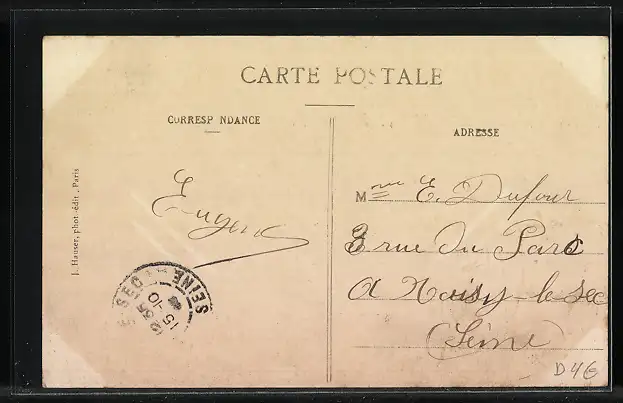 CARTE POSTALE
CORRESP NDANCE
ADRESSE
J. Hauser, phot.-édit. Paris
Eugene
Mme E. Dufour
3 rue Du Parc
A Noisy-le-Sec
(Seine)
E-SEC SEINE
15-10
D46